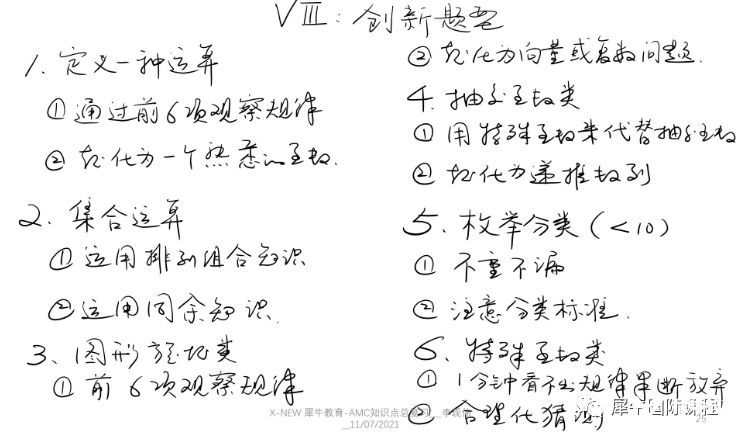 VIII：创新题型
1、定义一种运算
① 通过前6项观察规律
② 转化为一个熟悉的函数.
2、集合运算
① 运用排列组合知识
② 运用同余知识.
3、图形变换类
① 前6项观察规律
② 转化为向量或复数问题.
4、抽象函数类
① 用特殊函数来代替抽象函数
② 转化为递推数列
5、枚举分类（<10）
① 不重不漏
② 注意分类标准.
6、特殊函数类
① 1分钟看不出规律果断放弃
② 合理化猜测
X-NEW 犀牛教育-AMC知识点总
11/07/2021
犀牛国际课程